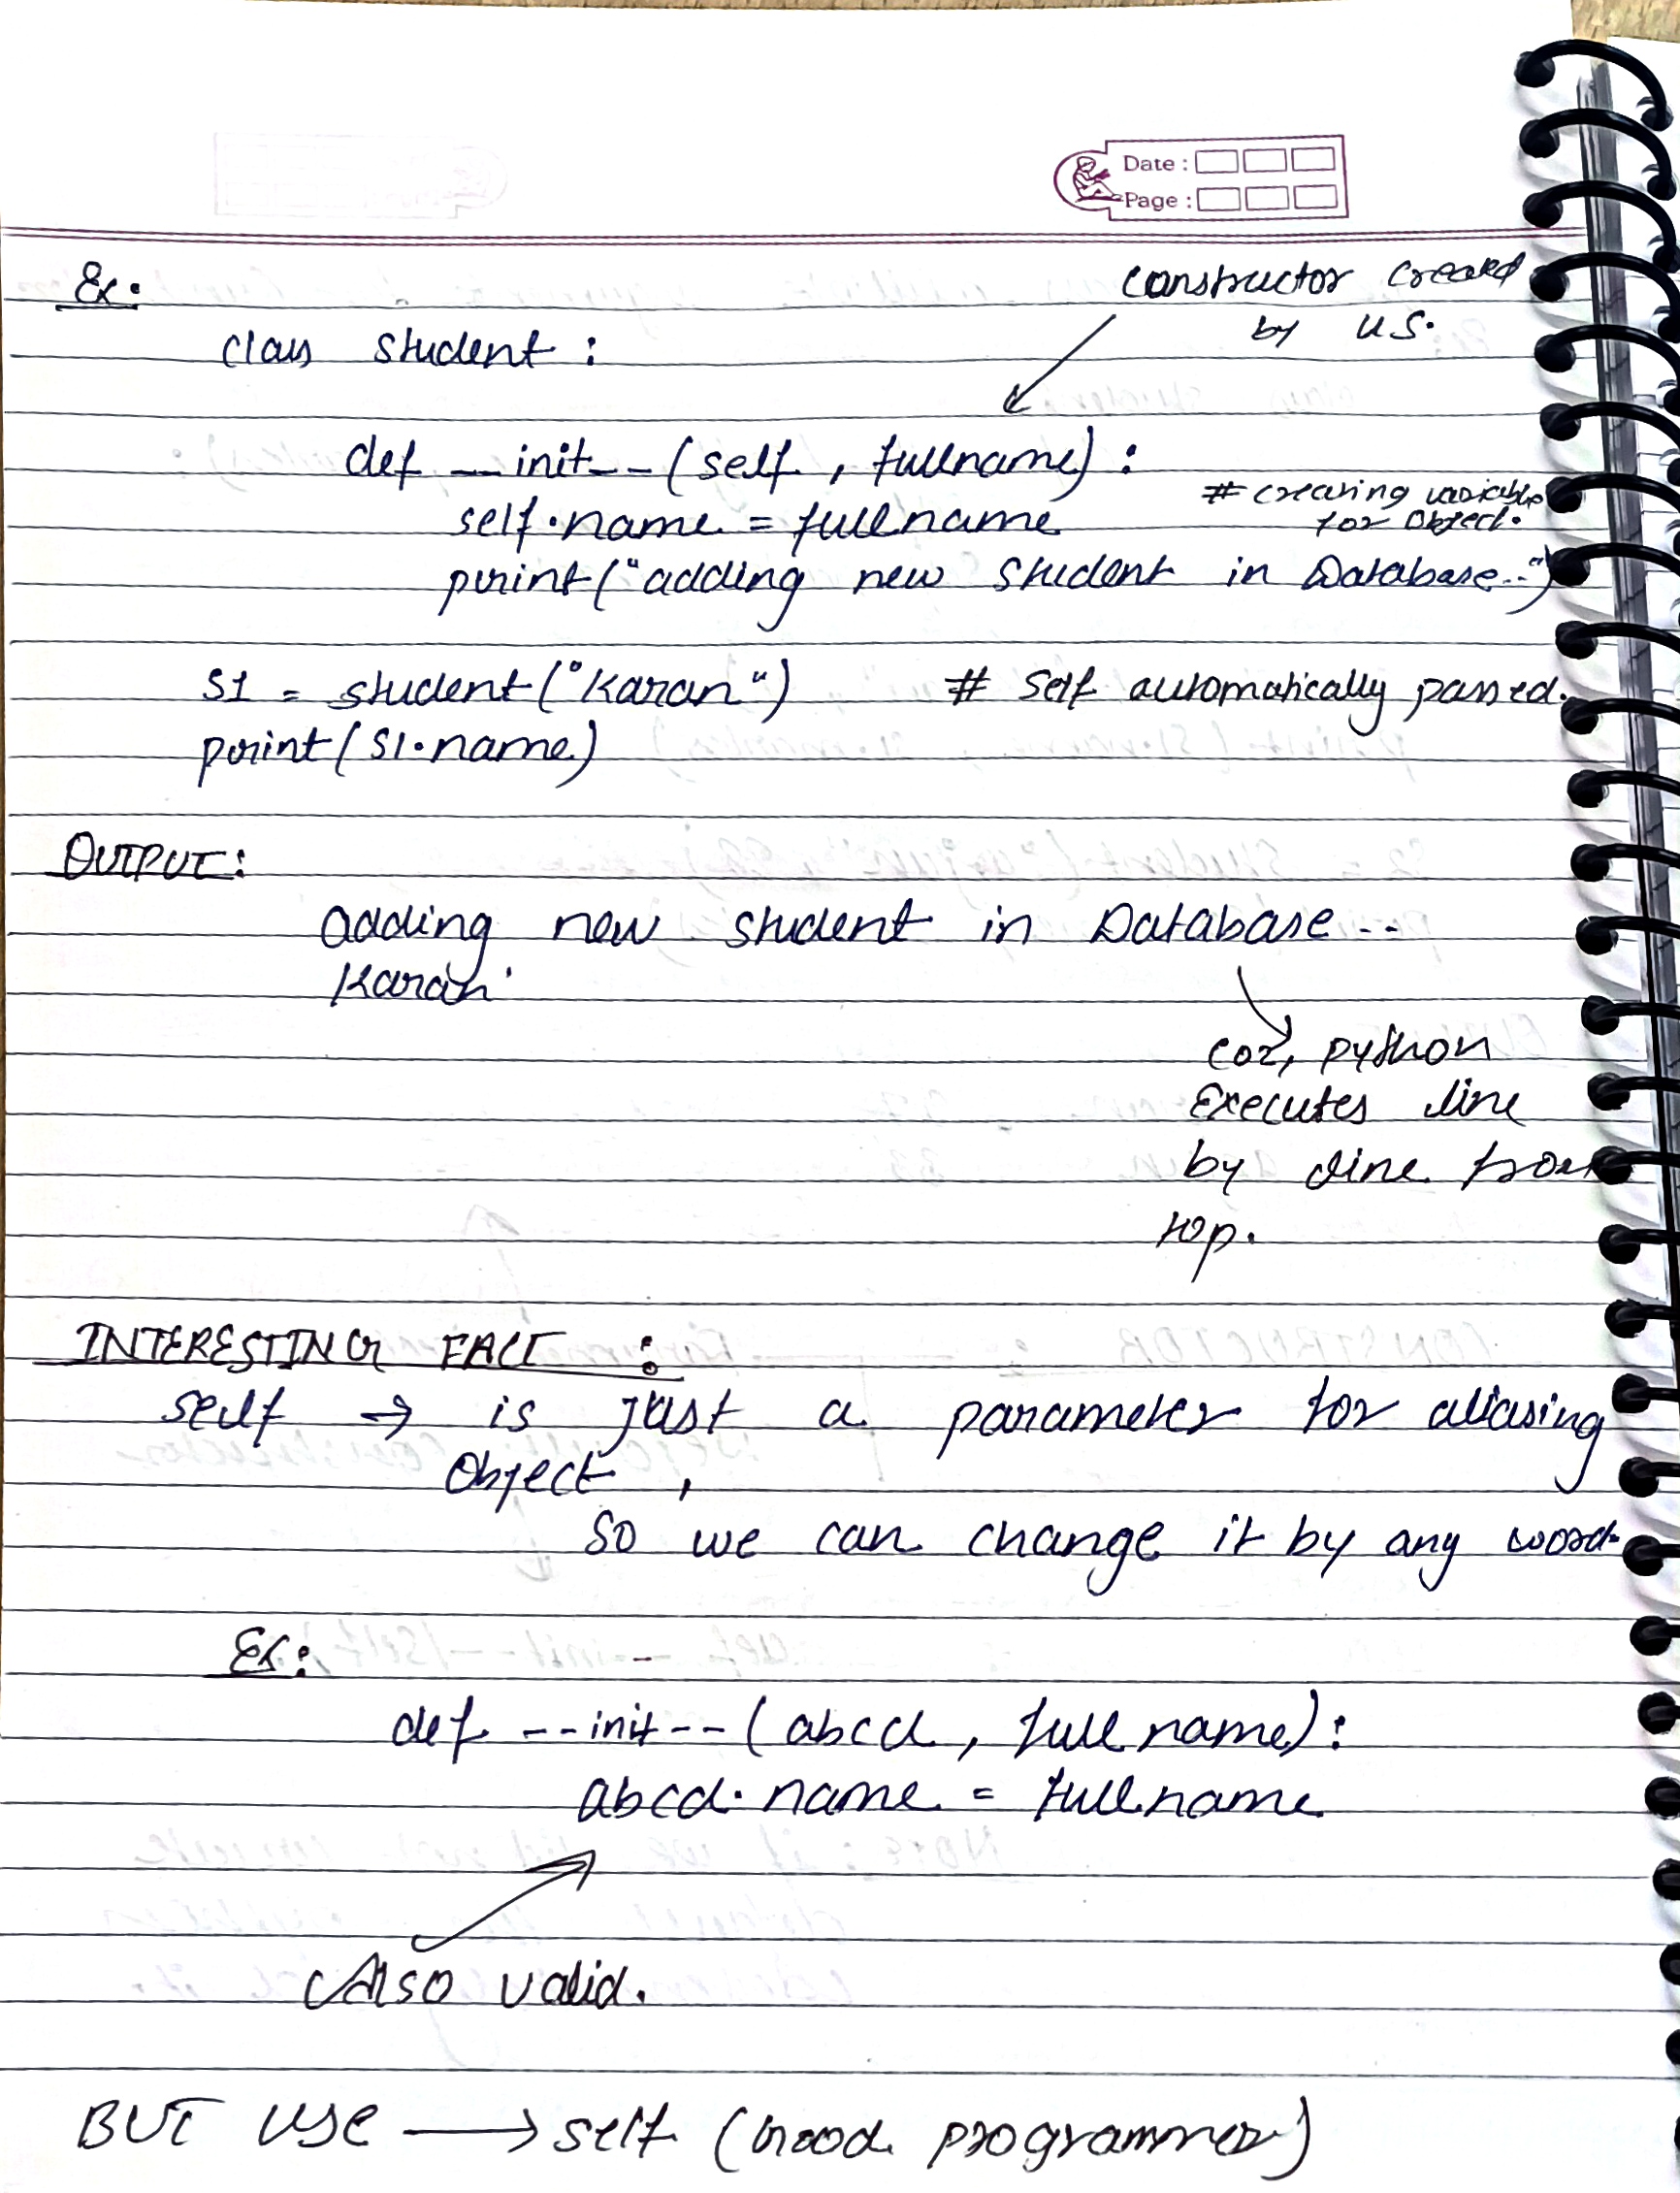 Date :
Page :
Ex:
constructor created
by us.
class student :
def __init__(self , fullname) :
# creating variable
for object.
self.name = fullname
print("adding new student in Database..")
S1 = student("Karan")     # self automatically passed.
print(S1.name)
OUTPUT:
adding new student in Database..
Karan
coz, python
Executes line
by line from
top.
INTERESTING FACT :
self → is just a parameter for aliasing
Object ,
So we can change it by any word.
Ex:
def __init__(abcd, fullname):
abcd.name = fullname
Also valid.
BUT use → self (Good programmer)